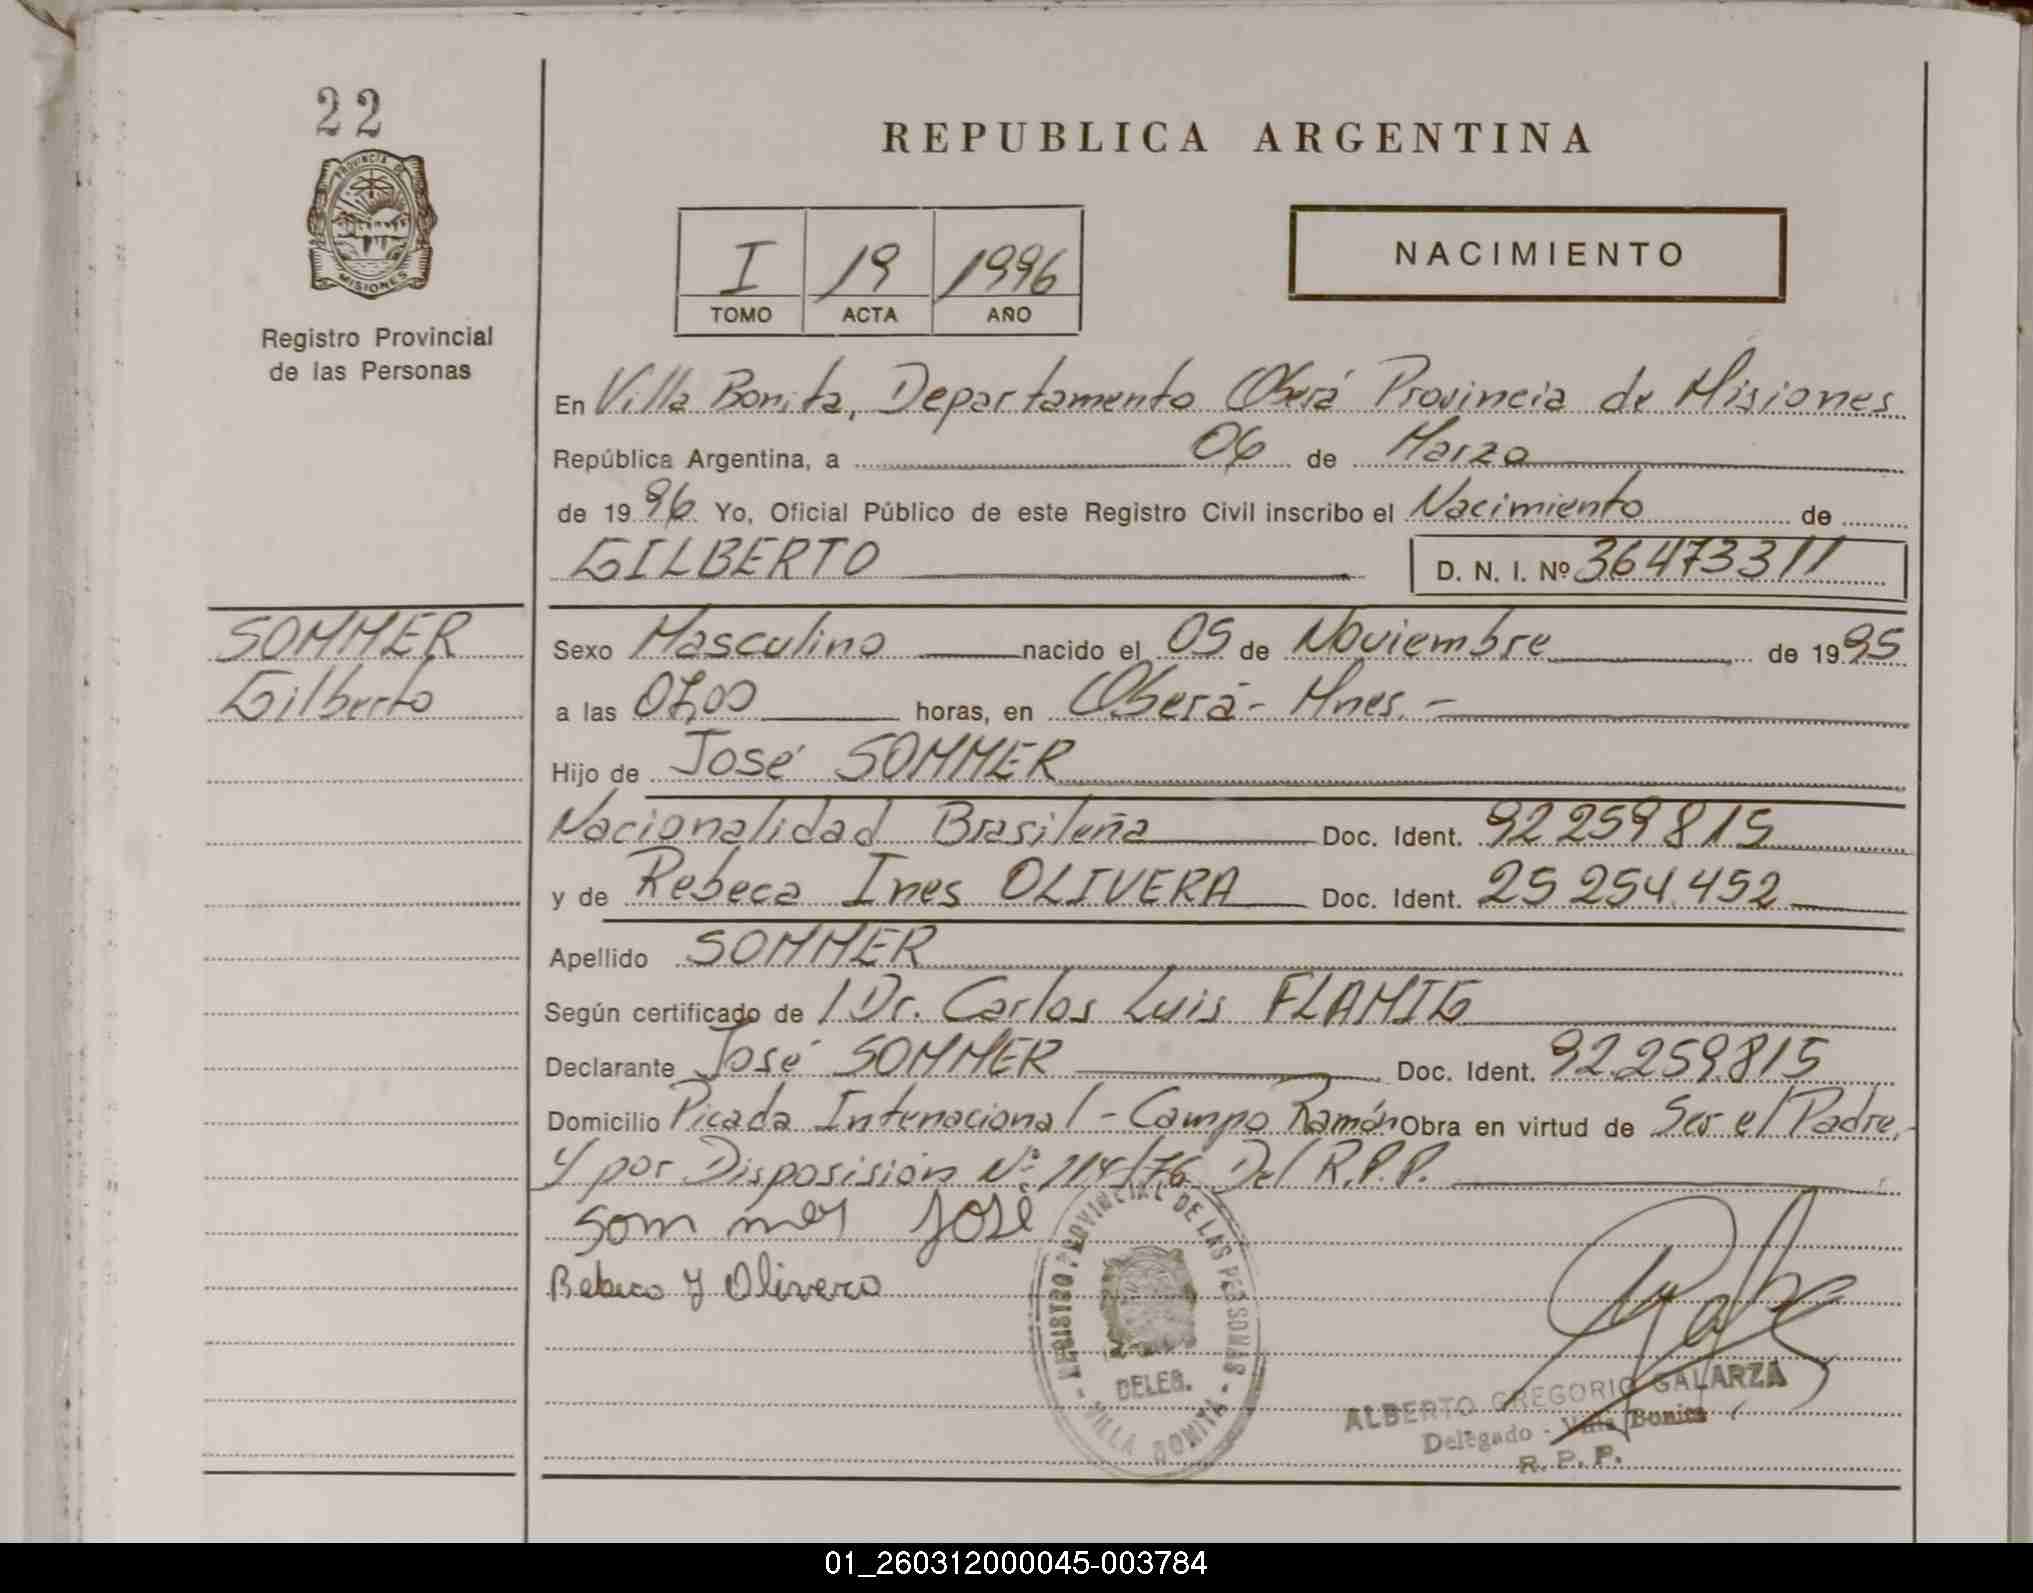 22
PROVINCIA DE
MISIONES
Registro Provincial
de las Personas
REPUBLICA ARGENTINA
I 19 1996
TOMO ACTA AÑO
NACIMIENTO
En Villa Bonita, Departamento Oberá Provincia de Misiones
República Argentina, a 06 de Marzo
de 1996 Yo, Oficial Público de este Registro Civil inscribo el Nacimiento de
GILBERTO D. N. I. Nº 36473311
SOMMER
Gilberto
Sexo Masculino nacido el 05 de Noviembre de 1995
a las 07,00 horas, en Oberá - Mnes. -
Hijo de José SOMMER
Nacionalidad Brasileña Doc. Ident. 92 259 815
y de Rebeca Ines OLIVERA Doc. Ident. 25 254.452
Apellido SOMMER
Según certificado de / Dr. Carlos Luis FLAMIG
Declarante José SOMMER Doc. Ident. 92.259.815
Domicilio Picada Intenacional - Campo Ramón Obra en virtud de Ser el Padre.-
Y por Disposisión Nº 114/76 Del R.P.P.
Som mer José
Rebeca Y Olivera
REGISTRO PROVINCIAL DE LAS PERSONAS
DELEG.
- VILLA BONITA -
ALBERTO GREGORIO GALARZA
Delegado - Villa Bonita
R. P. P.
01_260312000045-003784